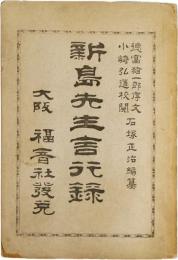 徳富猪一郎序文 石塚正治編纂
小崎弘道校閲
新島先生言行録
大阪 福音社發兌